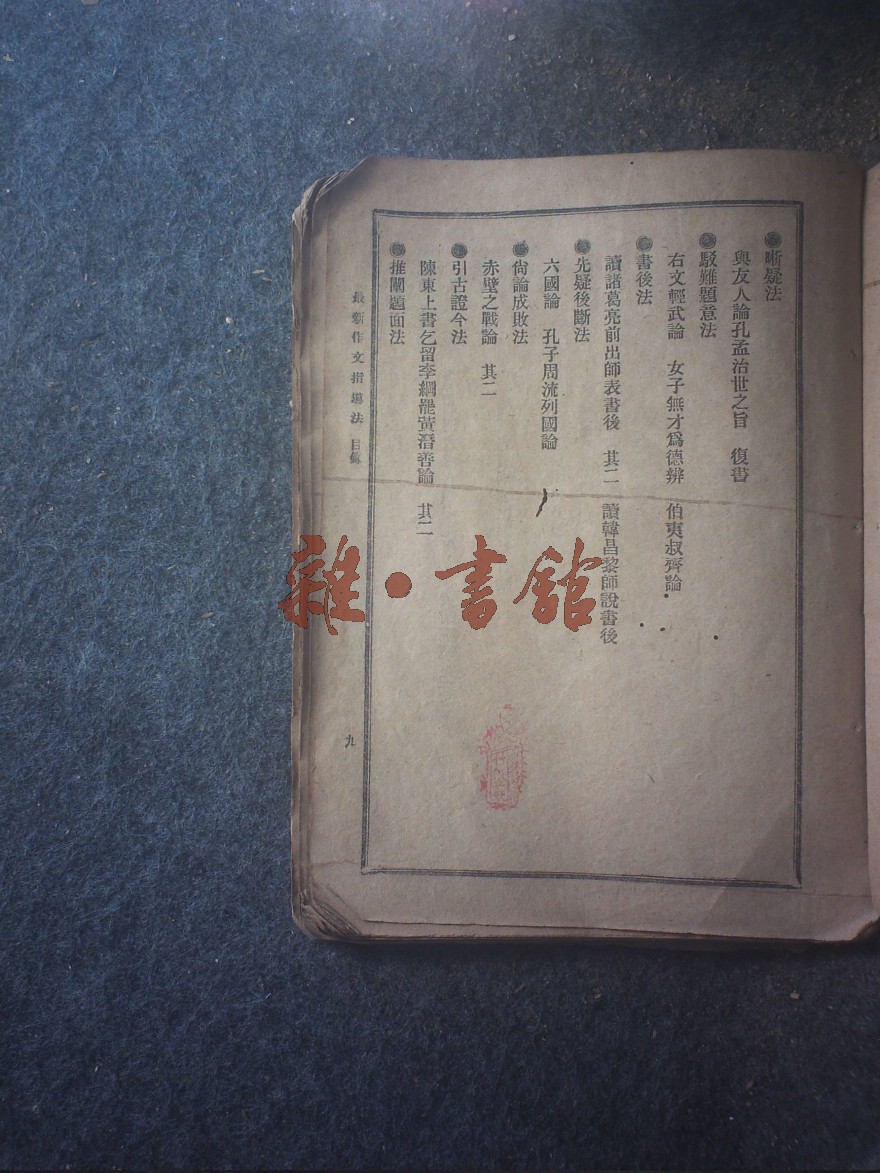 晰疑法
與友人論孔孟治世之旨　復書
駁難題意法
右文輕武論　女子無才爲德辨　伯夷叔齊論
書後法
讀諸葛亮前出師表書後　其二　讀韓昌黎師說書後
先疑後斷法
六國論　孔子周流列國論
尙論成敗法
赤壁之戰論　其二
引古證今法
陳東上書乞留李綱罷黃潛善論　其二
推闡題面法
最新作文指導法　目錄
九
雜·書館